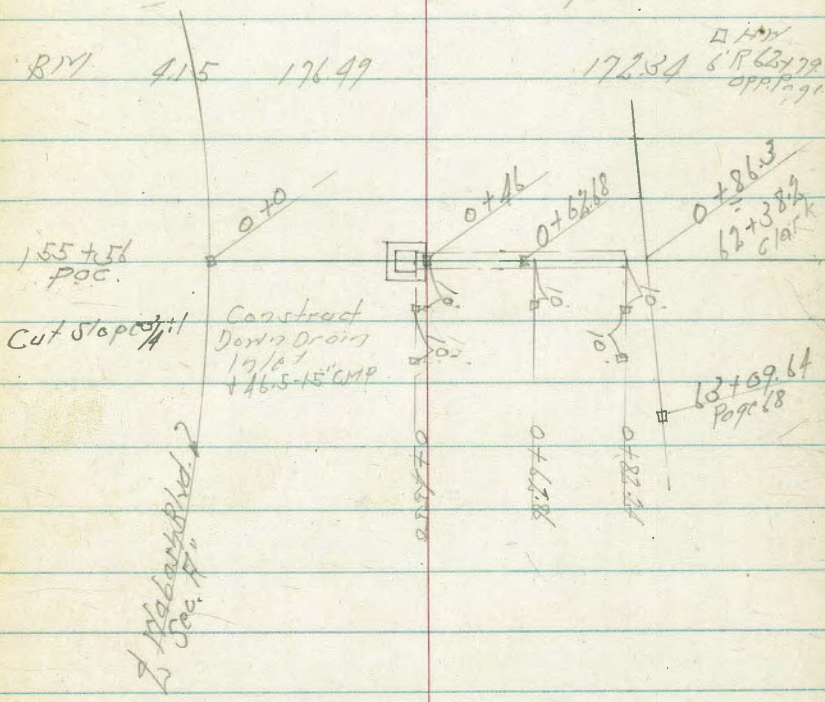 BM 4.15 176.49 172.34
6'R 62+79
OPP. Page
0+0
0+46
0+62.68
0+86.3 =
62+38.2
Clark
155+56
P.O.C.
Cut Slope 3/4:1
Construct
Down Drain
Inlet
+46.5-15" CMP
10'
10'
10'
10'
10'
63+09.64
Page 68
0+62.86
Wabash Blvd.
Sec. "A"